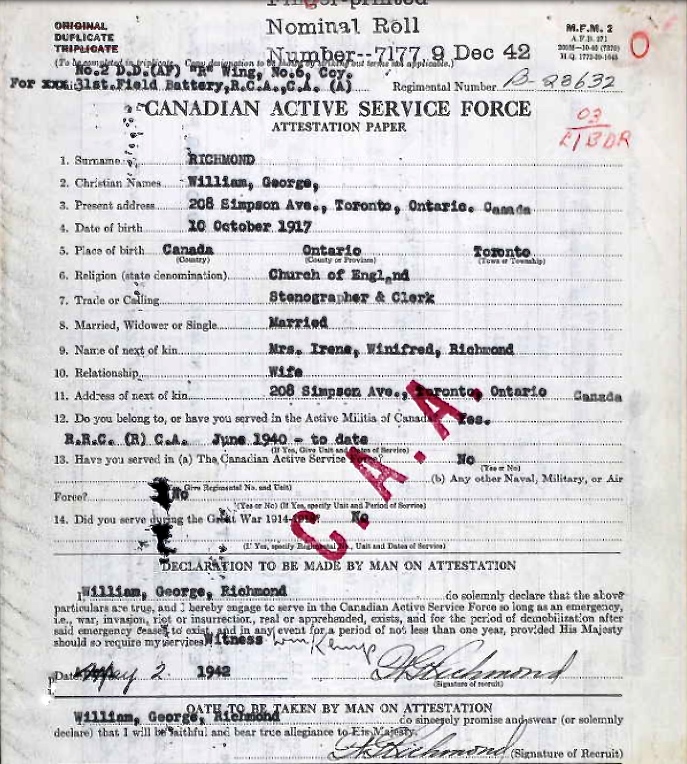 Finger-printed
Nominal Roll
Number--7177 9 Dec 42
ORIGINAL
DUPLICATE
TRIPLICATE
M.F.M. 2
(To be completed in triplicate. Copy designation to be shown by striking out terms not applicable.)
No.2 D.D.(AF) "R" Wing, No.6, Coy.
For 31st.Field Battery,R.C.A.,C.A. (A)
Regimental Number B-28632
O
CANADIAN ACTIVE SERVICE FORCE
ATTESTATION PAPER
03
L/BDR
1. Surname RICHMOND
2. Christian Names William, George,
3. Present address 208 Simpson Ave., Toronto, Ontario. Canada
4. Date of birth 10 October 1917
5. Place of birth Canada Ontario Toronto
(Country) (County or Province) (Town or Township)
6. Religion (state denomination) Church of England
7. Trade or Calling Stenographer & Clerk
8. Married, Widower or Single Married
9. Name of next of kin Mrs. Irene, Winifred, Richmond
10. Relationship Wife
11. Address of next of kin 208 Simpson Ave., Toronto, Ontario Canada
12. Do you belong to, or have you served in the Active Militia of Canada? Yes.
R.R.C. (R) C.A. June 1940 - to date
(If Yes, Give Unit and Dates of Service)
13. Have you served in (a) The Canadian Active Service Force? No
(Yes or No)
(b) Any other Naval, Military, or Air
Give Regimental No. and Unit)
Force? No
(Yes or No) (If Yes, specify Unit and Period of Service)
14. Did you serve during the Great War 1914-1918? No
(If Yes, specify Regimental No., Unit and Dates of Service)
C.A.A.
DECLARATION TO BE MADE BY MAN ON ATTESTATION
I William, George, Richmond do solemnly declare that the above
particulars are true, and I hereby engage to serve in the Canadian Active Service Force so long as an emergency,
i.e., war, invasion, riot or insurrection, real or apprehended, exists, and for the period of demobilization after
said emergency ceases to exist, and in any event for a period of not less than one year, provided His Majesty
should so require my services. Witness Wm Kemp
Date May 2 1942 Richmond
(Signature of recruit)
OATH TO BE TAKEN BY MAN ON ATTESTATION
William, George, Richmond do sincerely promise and swear (or solemnly
declare) that I will be faithful and bear true allegiance to His Majesty.
Richmond (Signature of Recruit)